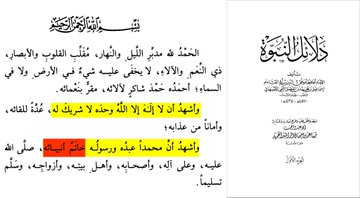 بِسْمِ اللَّهِ الرَّحْمَنِ الرَّحِيمِ
الحَمْدُ لله مدبِّرِ اللَّيلِ والنَّهار، مُقَلِّبِ القلوبِ والأبصارِ،
ذي النِّعَمِ والآلاءِ، لا يخفَى عليه شيءٌ في الأرضِ ولا في
السماءِ؛ أحمدُه حَمْدَ شاكرٍ لآلائه، مقرٍّ بنَعمائه.
وأشهدُ أن لا إلَـٰهَ إلا اللَّهُ وحدَه لا شريكَ له، عُدَّةً للقائه،
وأماناً من عذابه؛
وأشهدُ أنَّ محمداً عبدُه ورسولُـه خاتَمُ أنبيـائه، صلَّى الله
عليه، وعلى آلِه، وأصحابِه، وأهـل بيتِـه، وأزواجِـه، وسَلَّم
تسليماً.
دلائل النبوة
تأليف
الجزء الأول